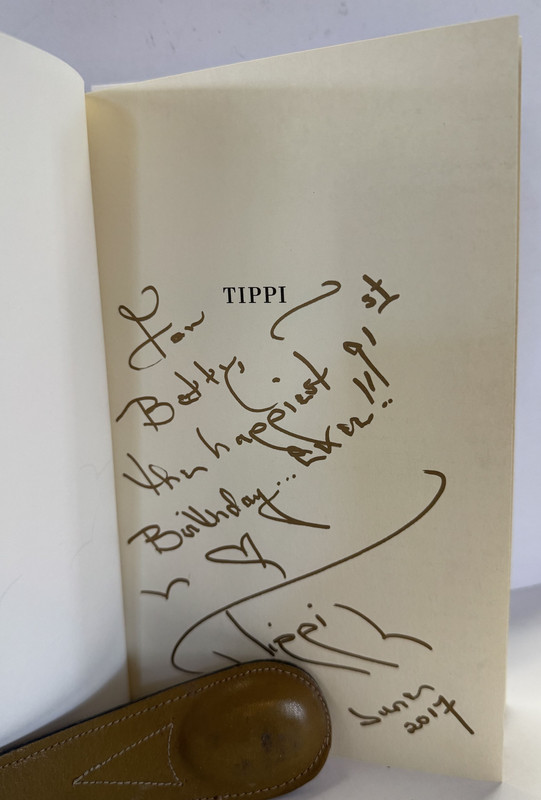 TIPPI
For
Betty,
the happiest 91st
Birthday... Ever!!!
Tippi
June
2017